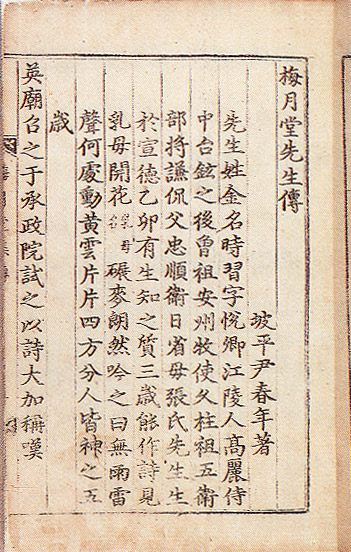 梅月堂先生傳
坡平尹春年著
先生姓金名時習字悅卿江陵人高麗侍
中台鉉之後曾祖安州牧使久柱祖五衛
部将謙侃父忠順衛日省母張氏先生生
於宣德乙卯有生知之質三歲能作詩見
乳母開花碾麥朗然吟之曰無雨雷
聲何處動黃雲片片四方分人皆神之五
歲
英廟召之于承政院試之以詩大加稱嘆